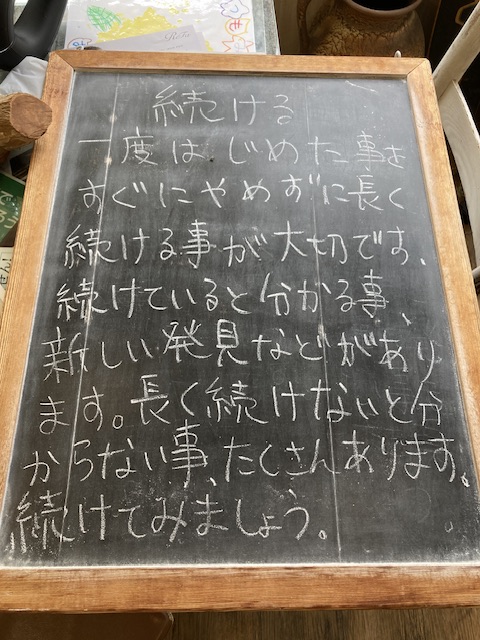 続ける
一度はじめた事を
すぐにやめずに長く
続ける事が大切です、
続けていると分かる事、
新しい発見などがあり
ます。長く続けないと分
からない事、たくさんあります。
続けてみましょう。